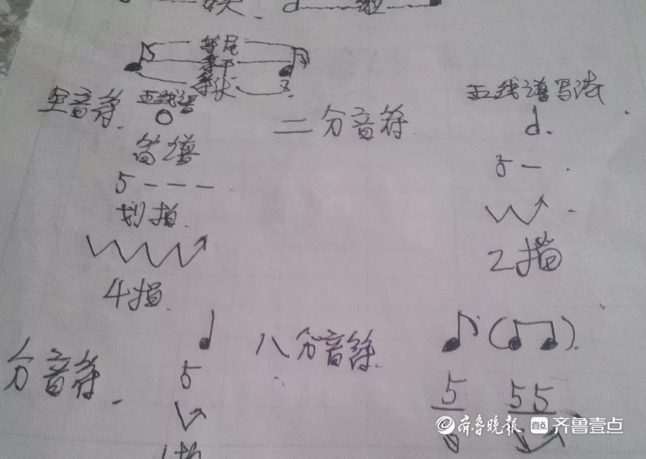 符尾
符干
符头
全音符. 五线谱
简谱
5 - - -
划拍
4拍.
二分音符
五线谱写法
d.
5 - .
2拍
分音符.
5
1拍
八分音符.
( )
5 55
齐鲁晚报 齐鲁壹点